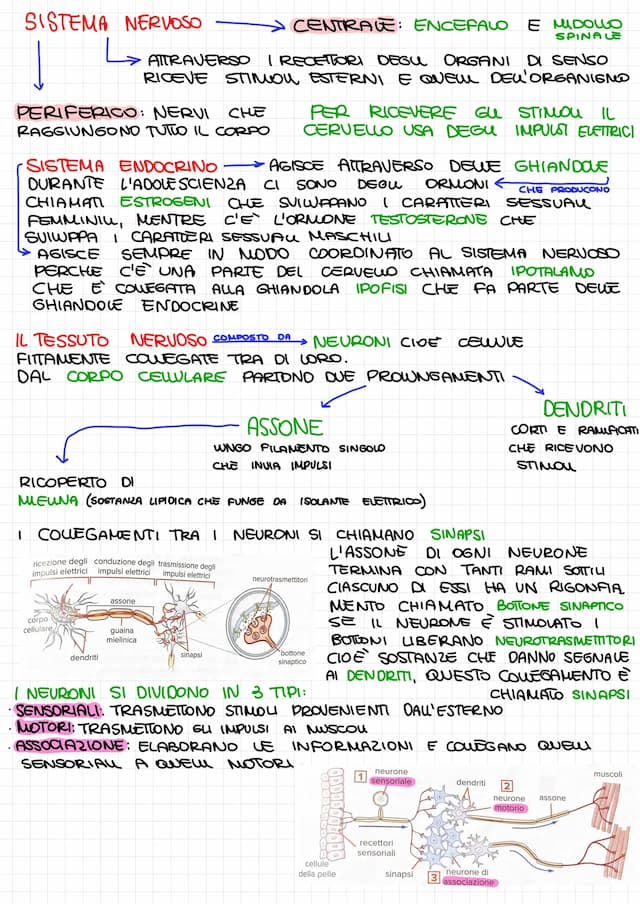 SISTEMA NERVOSO → CENTRALE: ENCEFALO E MIDOLLO
SPINALE
ATTRAVERSO I RECETTORI DEGLI ORGANI DI SENSO
RICEVE STIMOLI ESTERNI E QUELLI DELL'ORGANISMO
PERIFERICO: NERVI CHE
RAGGIUNGONO TUTTO IL CORPO
PER RICEVERE GLI STIMOLI IL
CERVELLO USA DEGLI IMPULSI ELETTRICI
SISTEMA ENDOCRINO → AGISCE ATTRAVERSO DELLE GHIANDOLE
CHE PRODUCONO
DURANTE L'ADOLESCIENZA CI SONO DEGLI ORMONI
CHIAMATI ESTROGENI CHE SVILUPPANO I CARATTERI SESSUALI
FEMMINILI, MENTRE C'È L'ORMONE TESTOSTERONE CHE
SVILUPPA I CARATTERI SESSUALI MASCHILI
AGISCE SEMPRE IN MODO COORDINATO AL SISTEMA NERVOSO
PERCHE C'È UNA PARTE DEL CERVELLO CHIAMATA IPOTALAMO
CHE È COLLEGATA ALLA GHIANDOLA IPOFISI CHE FA PARTE DELLE
GHIANDOLE ENDOCRINE
IL TESSUTO NERVOSO COMPOSTO DA → NEURONI CIOÈ CELLULE
FITTAMENTE COLLEGATE TRA DI LORO.
DAL CORPO CELLULARE PARTONO DUE PROLUNGAMENTI
ASSONE
LUNGO FILAMENTO SINGOLO
CHE INVIA IMPULSI
DENDRITI
CORTI E RAMIFICATI
CHE RICEVONO
STIMOLI
RICOPERTO DI
MIELINA (SOSTANZA LIPIDICA CHE FUNGE DA ISOLANTE ELETTRICO)
I COLLEGAMENTI TRA I NEURONI SI CHIAMANO SINAPSI
L'ASSONE DI OGNI NEURONE
TERMINA CON TANTI RAMI SOTTILI
CIASCUNO DI ESSI HA UN RIGONFIA
MENTO CHIAMATO BOTTONE SINAPTICO
SE IL NEURONE È STIMOLATO I
BOTTONI LIBERANO NEUROTRASMETTITORI
CIOÈ SOSTANZE CHE DANNO SEGNALE
AI DENDRITI, QUESTO COLLEGAMENTO È
CHIAMATO SINAPSI
ricezione degli
impulsi elettrici
conduzione degli
impulsi elettrici
trasmissione degli
impulsi elettrici
neurotrasmettitori
assone
corpo
cellulare
guaina
mielinica
dendriti
sinapsi
bottone
sinaptico
I NEURONI SI DIVIDONO IN 3 TIPI:
· SENSORIALI: TRASMETTONO STIMOLI PROVENIENTI DALL'ESTERNO
· MOTORI: TRASMETTONO GLI IMPULSI AI MUSCOLI
· ASSOCIAZIONE: ELABORANO LE INFORMAZIONI E COLLEGANO QUELLI
SENSORIALI A QUELLI MOTORI
1 neurone
sensoriale
dendriti
2
neurone
motorio
assone
muscoli
recettori
sensoriali
cellule
della pelle
sinapsi
3 neurone di
associazione